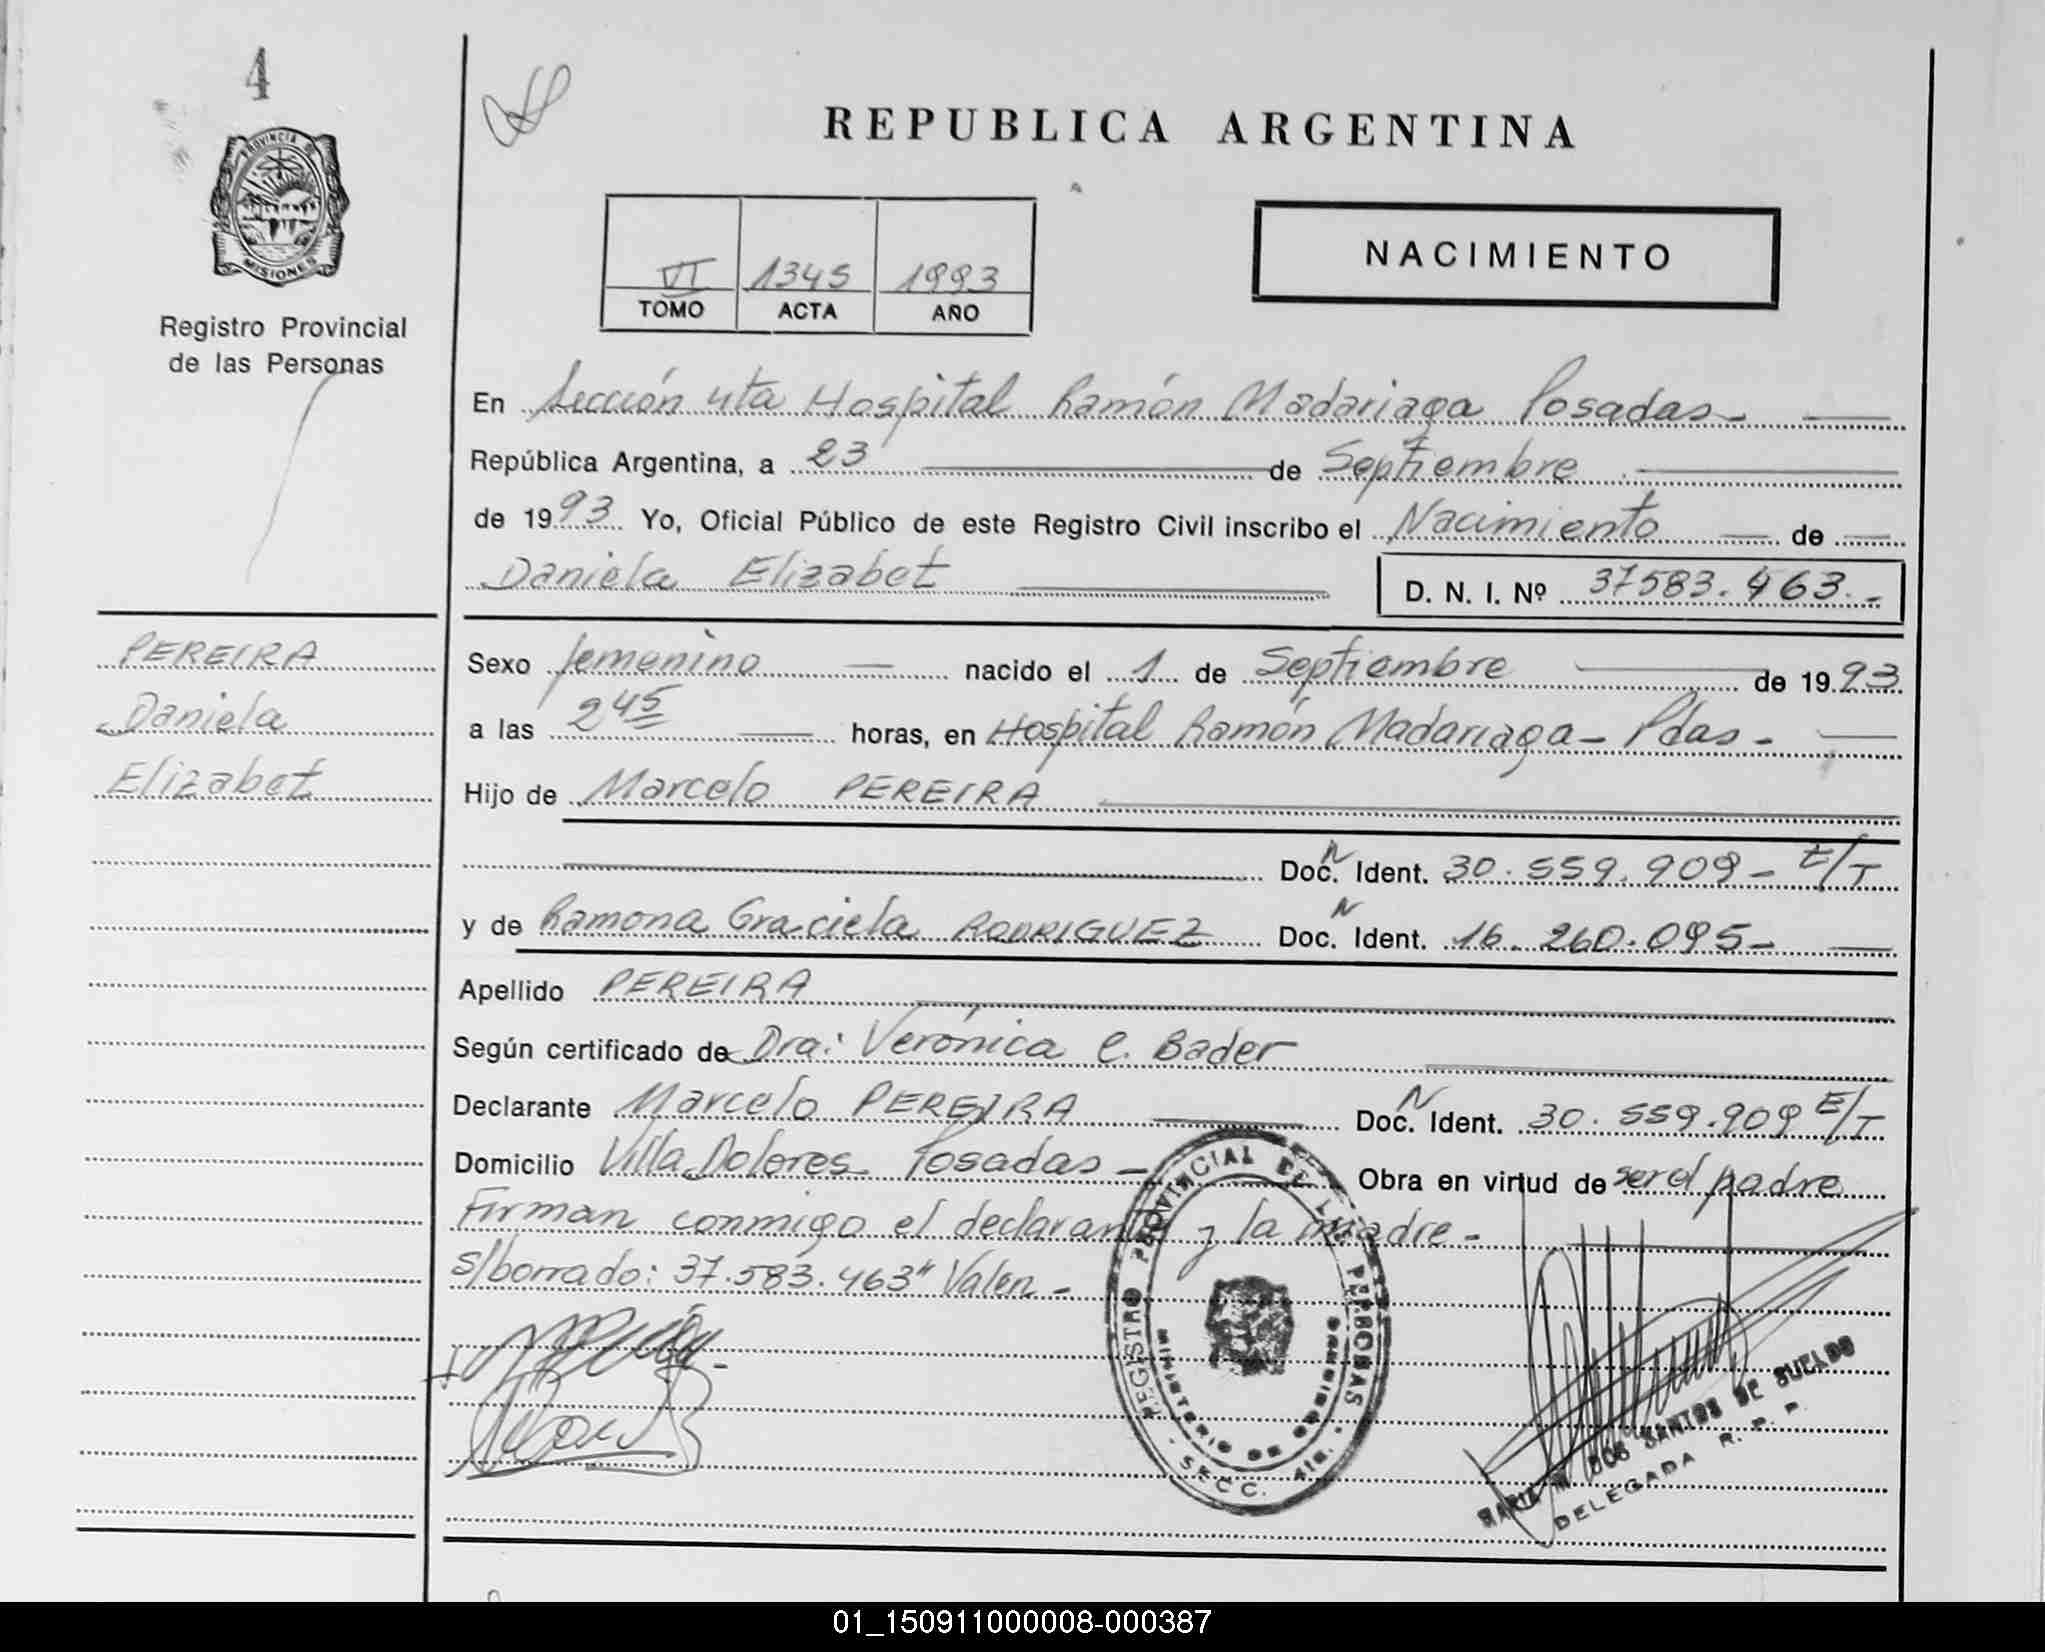 4
PROVINCIA DE
MISIONES
Registro Provincial
de las Personas
REPUBLICA ARGENTINA
VI 1345 1993
TOMO ACTA AÑO
NACIMIENTO
En Sección 4ta Hospital Ramón Madariaga Posadas -
República Argentina, a 23 de Septiembre
de 1993 Yo, Oficial Público de este Registro Civil inscribo el Nacimiento de
Daniela Elizabet D. N. I. Nº 37583.463.-
PEREIRA
Daniela
Elizabet
Sexo femenino nacido el 1 de Septiembre de 1993
a las 2 45 horas, en Hospital Ramón Madariaga - Pdas -
Hijo de Marcelo PEREIRA
Doc. N Ident. 30.559.909 - E/T
y de Ramona Graciela RODRIGUEZ Doc. N Ident. 16.260.095 -
Apellido PEREIRA
Según certificado de Dra: Verónica C. Bader
Declarante Marcelo PEREIRA Doc. N Ident. 30.559.909 E/T
Domicilio Villa Dolores - Posadas - Obra en virtud de ser el padre
Firman conmigo el declarante y la madre -
s/borrado: 37.583.463" Valen -
REGISTRO PROVINCIAL DE LAS PERSONAS
MINISTERIO DE GOBIERNO
- SECC. 4ta. -
MARIA M DOS SANTOS DE SUELDO
DELEGADA R. P. P.
01_150911000008-000387